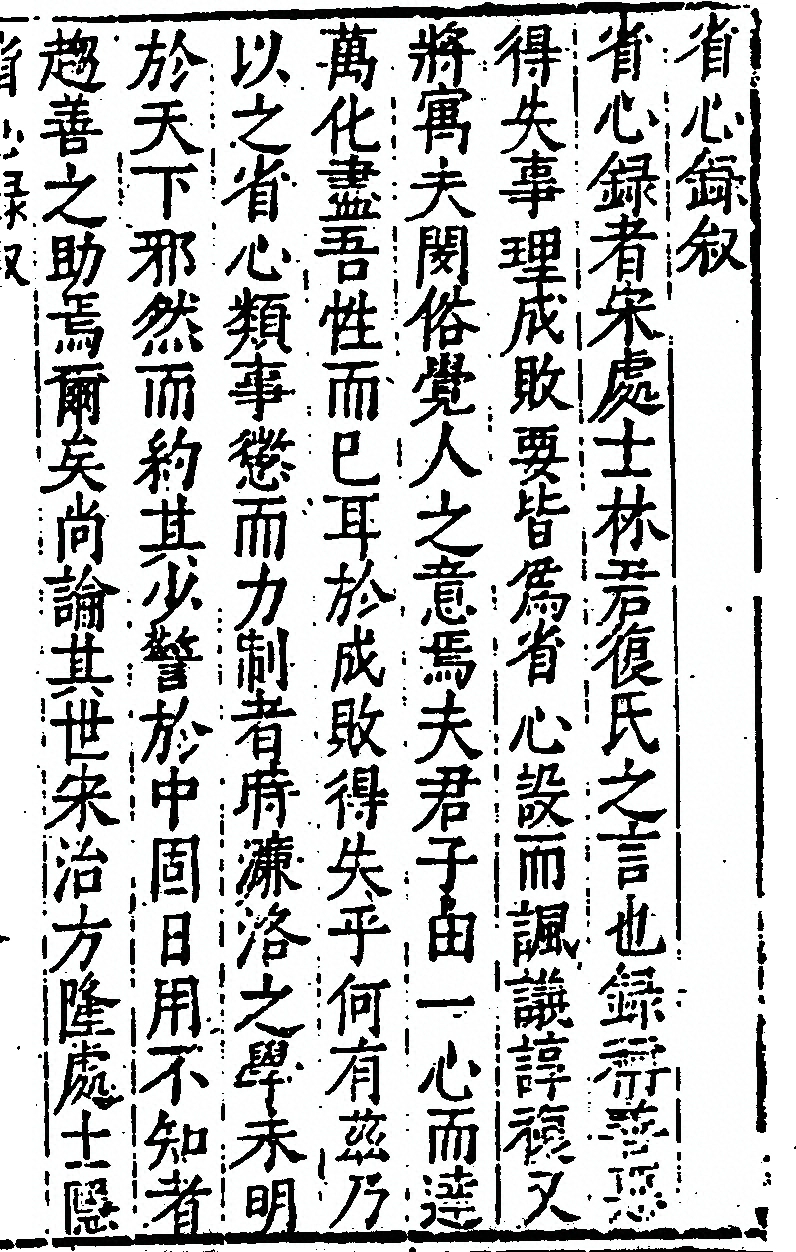 省心録叙
省心録者宋處士林君復氏之言也録
得失事理成敗要皆爲省心設而諷議諄複又
將寓夫閔俗覺人之意焉夫君子由一心而達
萬化盡吾性而已耳於成敗得失乎何有茲乃
以之省心類事懲而力制者時濂洛之學未明
於天下邪然而約其少警於中固日用不知者
趨善之助焉爾矣尚論其世宋治方隆處士隱